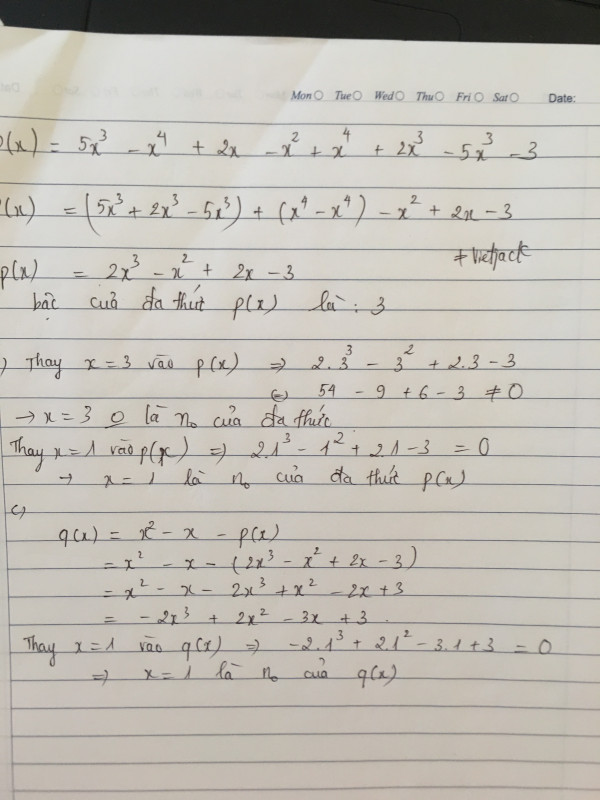 Mon Tue Wed Thu Fri Sat Date:
(x) = 5x³ - x⁴ + 2x - x² + x⁴ + 2x³ - 5x³ - 3
(x) = (5x³ + 2x³ - 5x³) + (x⁴ - x⁴) - x² + 2x - 3
# Vietjack
p(x) = 2x³ - x² + 2x - 3
bậc của đa thức p(x) là : 3
) Thay x = 3 vào p(x) ⇒ 2.3³ - 3² + 2.3 - 3
⇔ 54 - 9 + 6 - 3 ≠ 0
→ x = 3 o là no của đa thức
Thay x = 1 vào p(x) ⇒ 2.1³ - 1² + 2.1 - 3 = 0
→ x = 1 là no của đa thức p(x)
c)
q(x) = x² - x - p(x)
= x² - x - (2x³ - x² + 2x - 3)
= x² - x - 2x³ + x² - 2x + 3
= - 2x³ + 2x² - 3x + 3 .
Thay x = 1 vào q(x) ⇒ -2.1³ + 2.1² - 3.1 + 3 = 0
⇒ x = 1 là no của q(x)